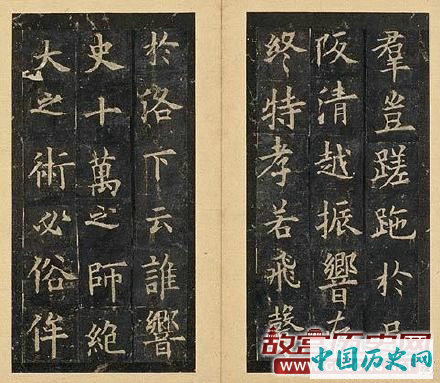 羣豈蹉跎於
阪清越振響
終特孝若飛聲
於洛下云誰響
史十萬之師絕
大之術必俗侔
中国历史网